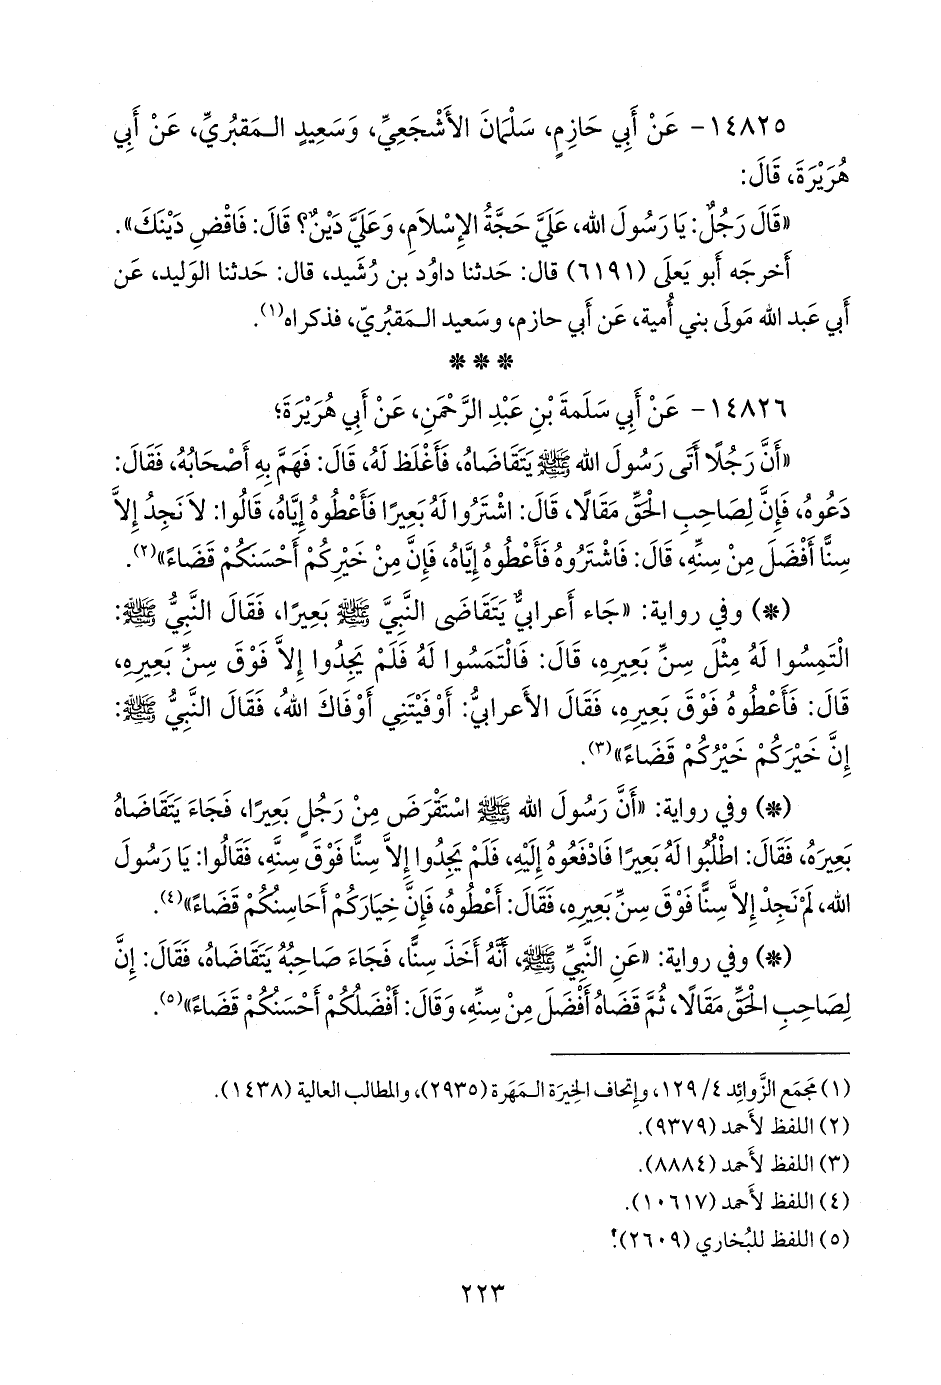 ١٤٨٢٥- عَنْ أَبِي حَازِمٍ، سَلْمَانَ الأَشْجَعِيِّ، وَسَعِيدٍ الـمَقبُرِيِّ، عَنْ أَبِي
هُرَيْرَةَ، قَالَ:
«قَالَ رَجُلٌ: يَا رَسُولَ الله، عَلَيَّ حَجَّةُ الإِسْلَامِ، وَعَلَيَّ دَيْنٌ؟ قَالَ: فَاقْضِ دَيْنَكَ».
أَخرجَه أَبو يَعلَى (٦١٩١) قال: حَدثنا داوُد بن رُشَيد، قال: حَدثنا الوَليد، عَن
أَبي عَبد الله مَولَى بني أُمية، عَن أَبي حازم، وسَعيد الـمَقبُريّ، فذكراه(١).
* * *
١٤٨٢٦- عَنْ أَبِي سَلَمةَ بْنِ عَبْدِ الرَّحْمَنِ، عَنْ أَبِي هُرَيْرَةَ؛
«أَنَّ رَجُلًا أَتَى رَسُولَ الله ﷺ يَتَقَاضَاهُ، فَأَغْلَظَ لَهُ، قَالَ: فَهَمَّ بِهِ أَصْحَابُهُ، فَقَالَ:
دَعُوهُ، فَإِنَّ لِصَاحِبِ الْحَقِّ مَقَالًا، قَالَ: اشْتَرُوا لَهُ بَعِيرًا فَأَعْطُوهُ إِيَّاهُ، قَالُوا: لاَ نَجِدُ إِلاَّ
سِنًّا أَفْضَلَ مِنْ سِنِّهِ، قَالَ: فَاشْتَرُوهُ فَأَعْطُوهُ إِيَّاهُ، فَإِنَّ مِنْ خَيْرِكُمْ أَحْسَنَكُمْ قَضَاءً»(٢).
(*) وفي رواية: «جَاء أَعرابيٌّ يَتَقَاضَى النَّبِيَّ ﷺ بَعِيرًا، فَقَالَ النَّبِيُّ ﷺ:
الْتَمِسُوا لَهُ مِثْلَ سِنِّ بَعِيرِهِ، قَالَ: فَالْتَمَسُوا لَهُ فَلَمْ يَجِدُوا إِلاَّ فَوْقَ سِنِّ بَعِيرِهِ،
قَالَ: فَأَعْطُوهُ فَوْقَ بَعِيرِهِ، فَقَالَ الأَعرابيُّ: أَوْفَيْتَنِي أَوْفَاكَ اللهُ، فَقَالَ النَّبِيُّ ﷺ:
إِنَّ خَيْرَكُمْ خَيْرُكُمْ قَضَاءً»(٣).
(*) وفي رواية: «أَنَّ رَسُولَ الله ﷺ اسْتَقْرَضَ مِنْ رَجُلٍ بَعِيرًا، فَجَاءَ يَتَقَاضَاهُ
بَعِيرَهُ، فَقَالَ: اطْلُبُوا لَهُ بَعِيرًا فَادْفَعُوهُ إِلَيْهِ، فَلَمْ يَجِدُوا إِلاَّ سِنًّا فَوْقَ سِنِّهِ، فَقَالُوا: يَا رَسُولَ
الله، لَمْ نَجِدْ إِلاَّ سِنًّا فَوْقَ سِنِّ بَعِيرِهِ، فَقَالَ: أَعْطُوهُ، فَإِنَّ خِيَارَكُمْ أَحَاسِنُكُمْ قَضَاءً»(٤).
(*) وفي رواية: «عَنِ النَّبِيِّ ﷺ، أَنَّهُ أَخَذَ سِنًّا، فَجَاءَ صَاحِبُهُ يَتَقَاضَاهُ، فَقَالَ: إِنَّ
لِصَاحِبِ الْحَقِّ مَقَالًا، ثُمَّ قَضَاهُ أَفْضَلَ مِنْ سِنِّهِ، وَقَالَ: أَفْضَلُكُمْ أَحْسَنُكُمْ قَضَاءً»(٥).
(١) مَجمَع الزَّوائِد ٤/ ١٢٩، وإتحاف الخِيرَة الـمَهَرة (٢٩٣٥)، والمطالب العالية (١٤٣٨).
(٢) اللفظ لأَحمد (٩٣٧٩).
(٣) اللفظ لأَحمد (٨٨٨٤).
(٤) اللفظ لأَحمد (١٠٦١٧).
(٥) اللفظ للبُخاري (٢٦٠٩).
٢٢٣